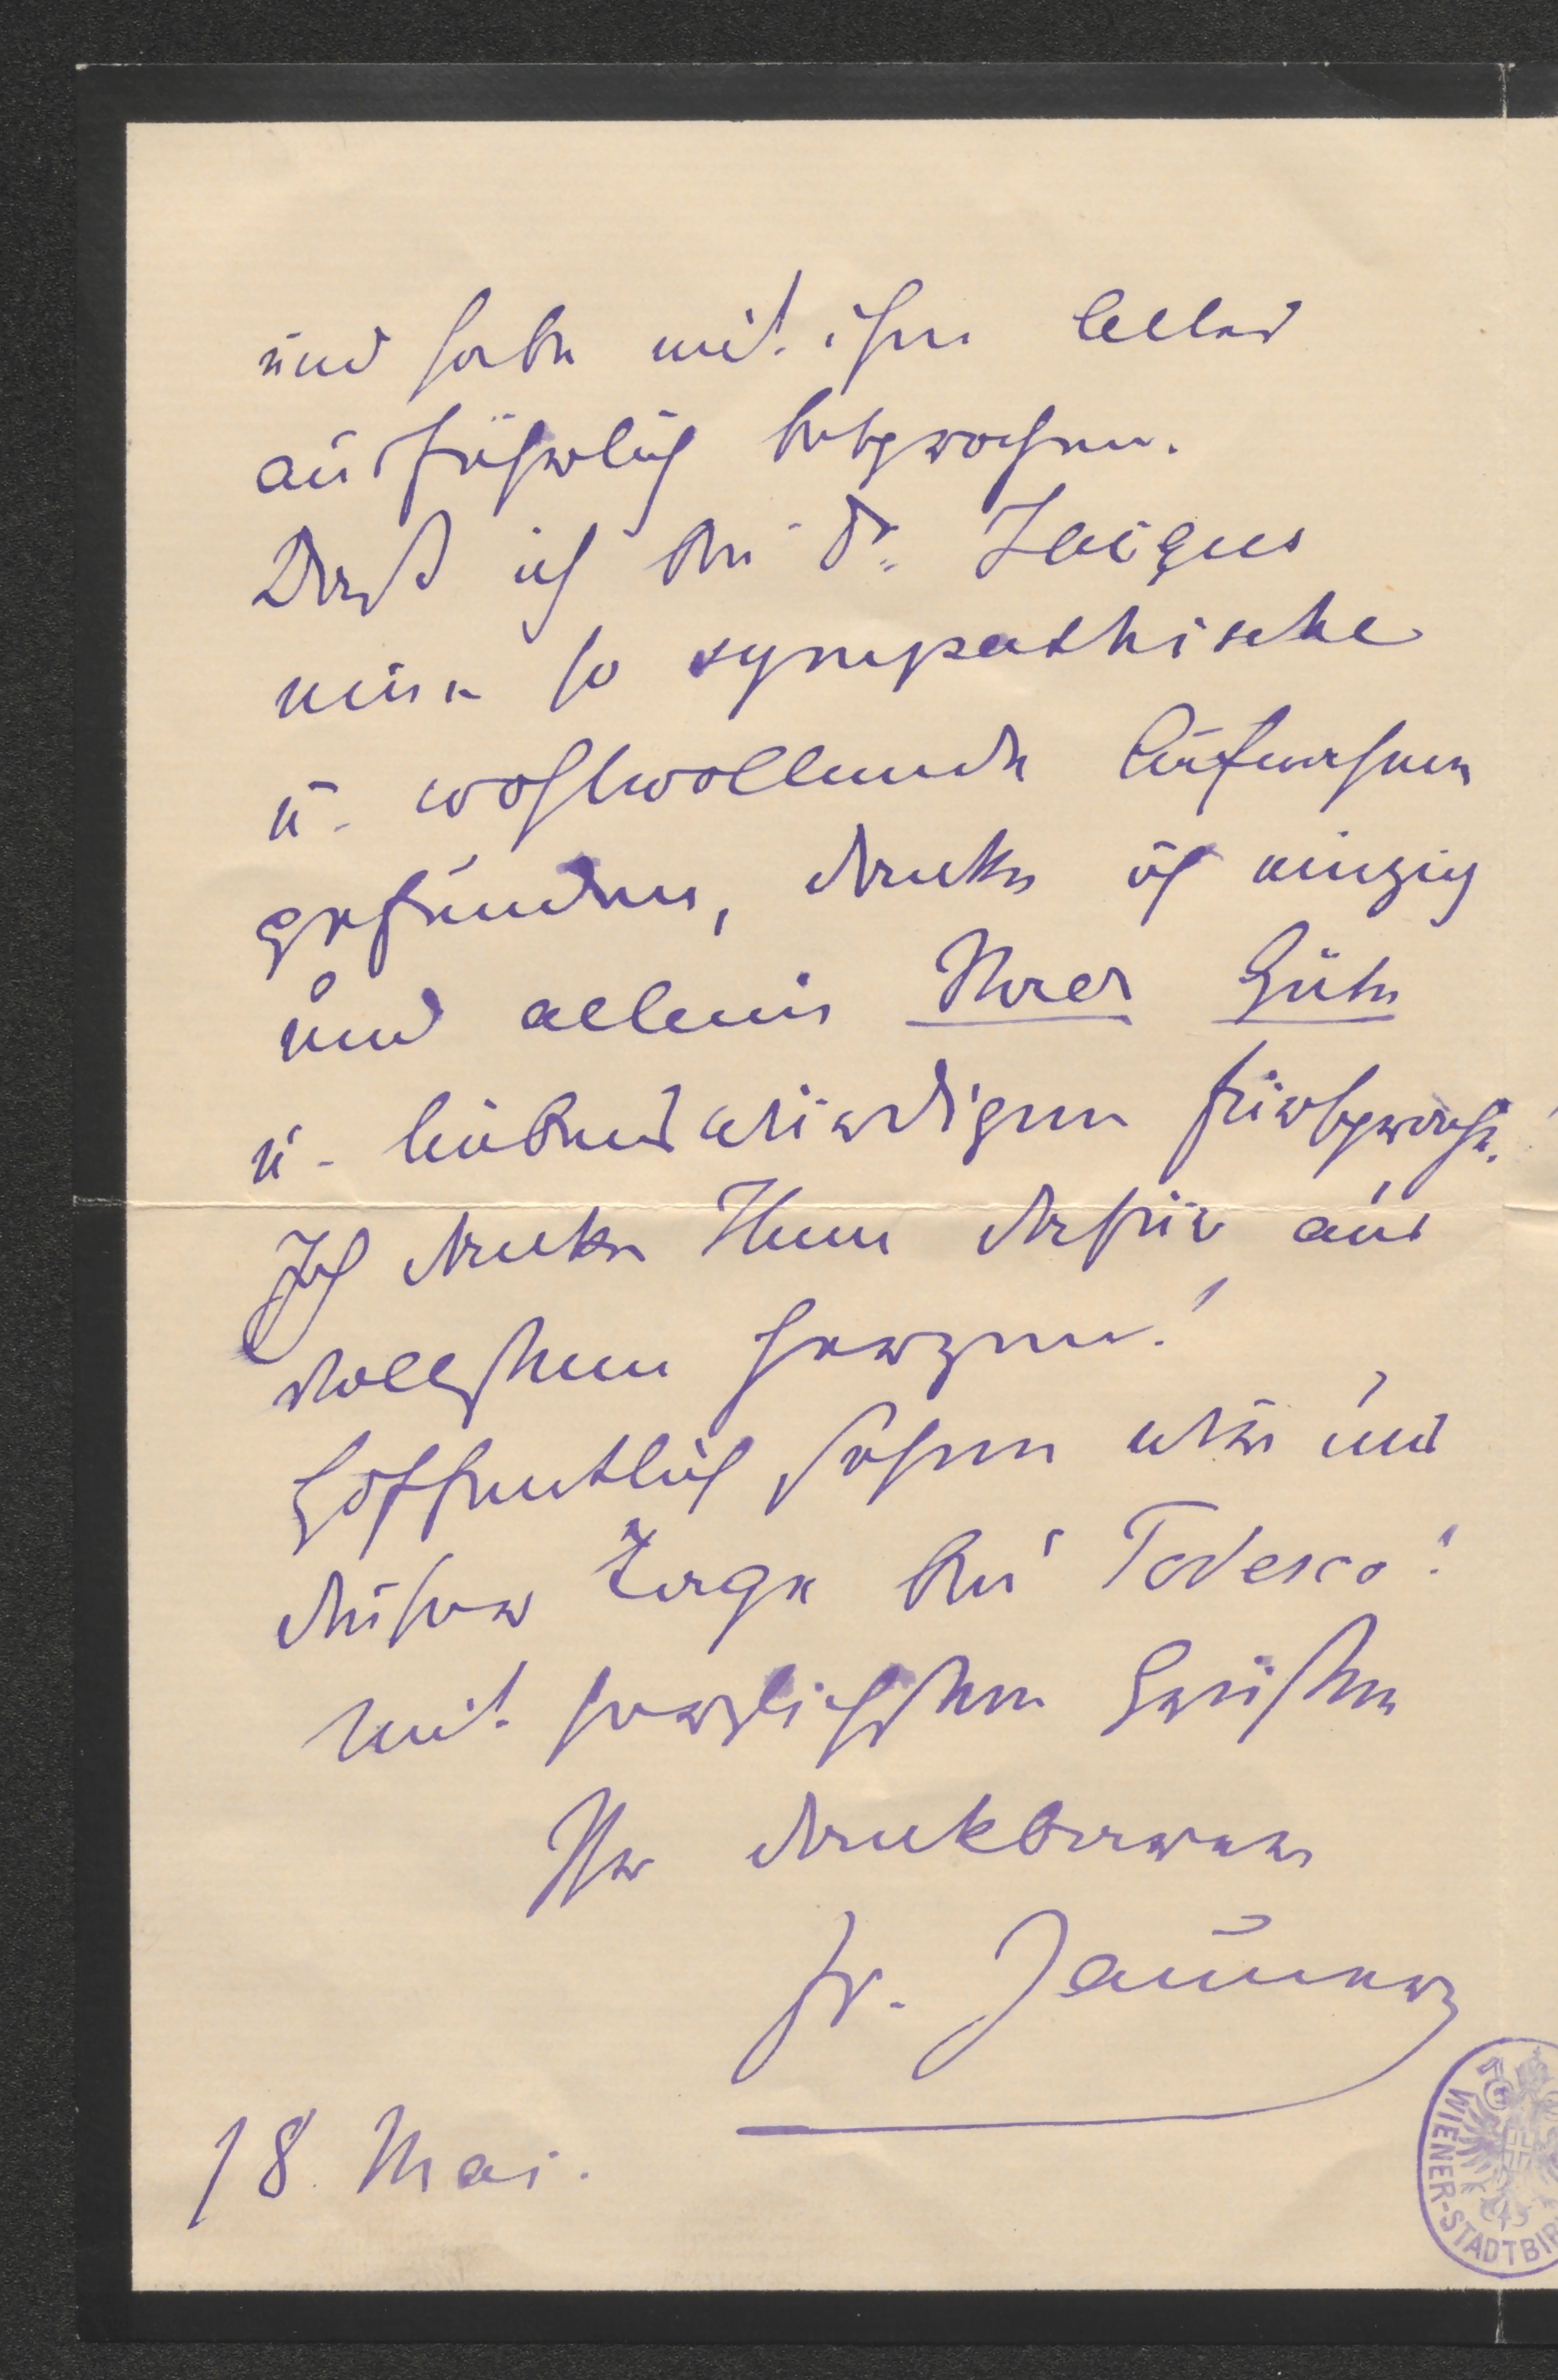 und habe mit ihm Alles
ausführlich besprochen.
Daß ich bei Dr. Jaiques
eine so sympathische
u. wohlwollende Aufnahme
gefunden, danke ich einzig
und allein Ihrer Güte
u. liebenswürdigen Fürsprache.
Ich danke Ihnen dafür aus
vollstem Herzen!
Hoffentlich sehen wir uns
dieser Tage bei Todesco!
Mit herzlichsten Grüßen
Ihr dankbarer
Fr. Jauner
18. Mai.
WIENER-STADTBI